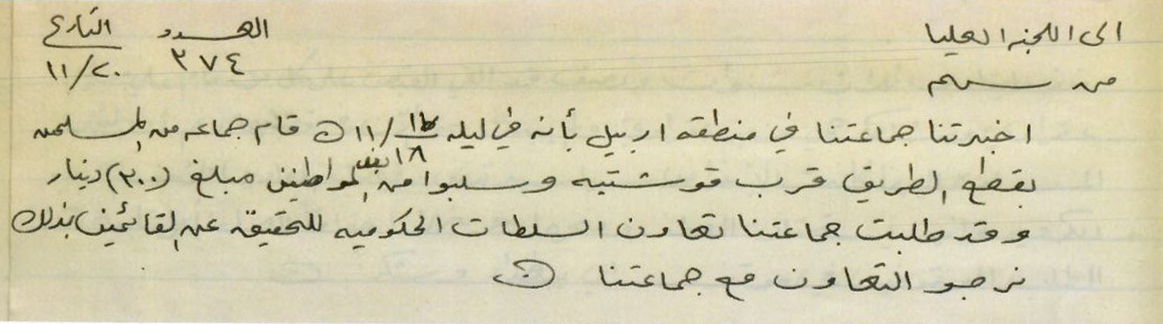 الى اللجنه العليا العدد التاريخ
من سهم ٣٧٤ ١١/٢٠
اخبرتنا جماعتنا في منطقه اربيل بأنه في ليله ١٧/١٨ /١١ قام جماعه من المسلحين
بقطع الطريق قرب قوشتبه وسلبوا من بعض المواطنين مبلغ (٣٠٠) دينار
وقد طلبت جماعتنا تعاون السلطات الحكوميه للتحقيق عن القائمين بذلك
نرجو التعاون مع جماعتنا